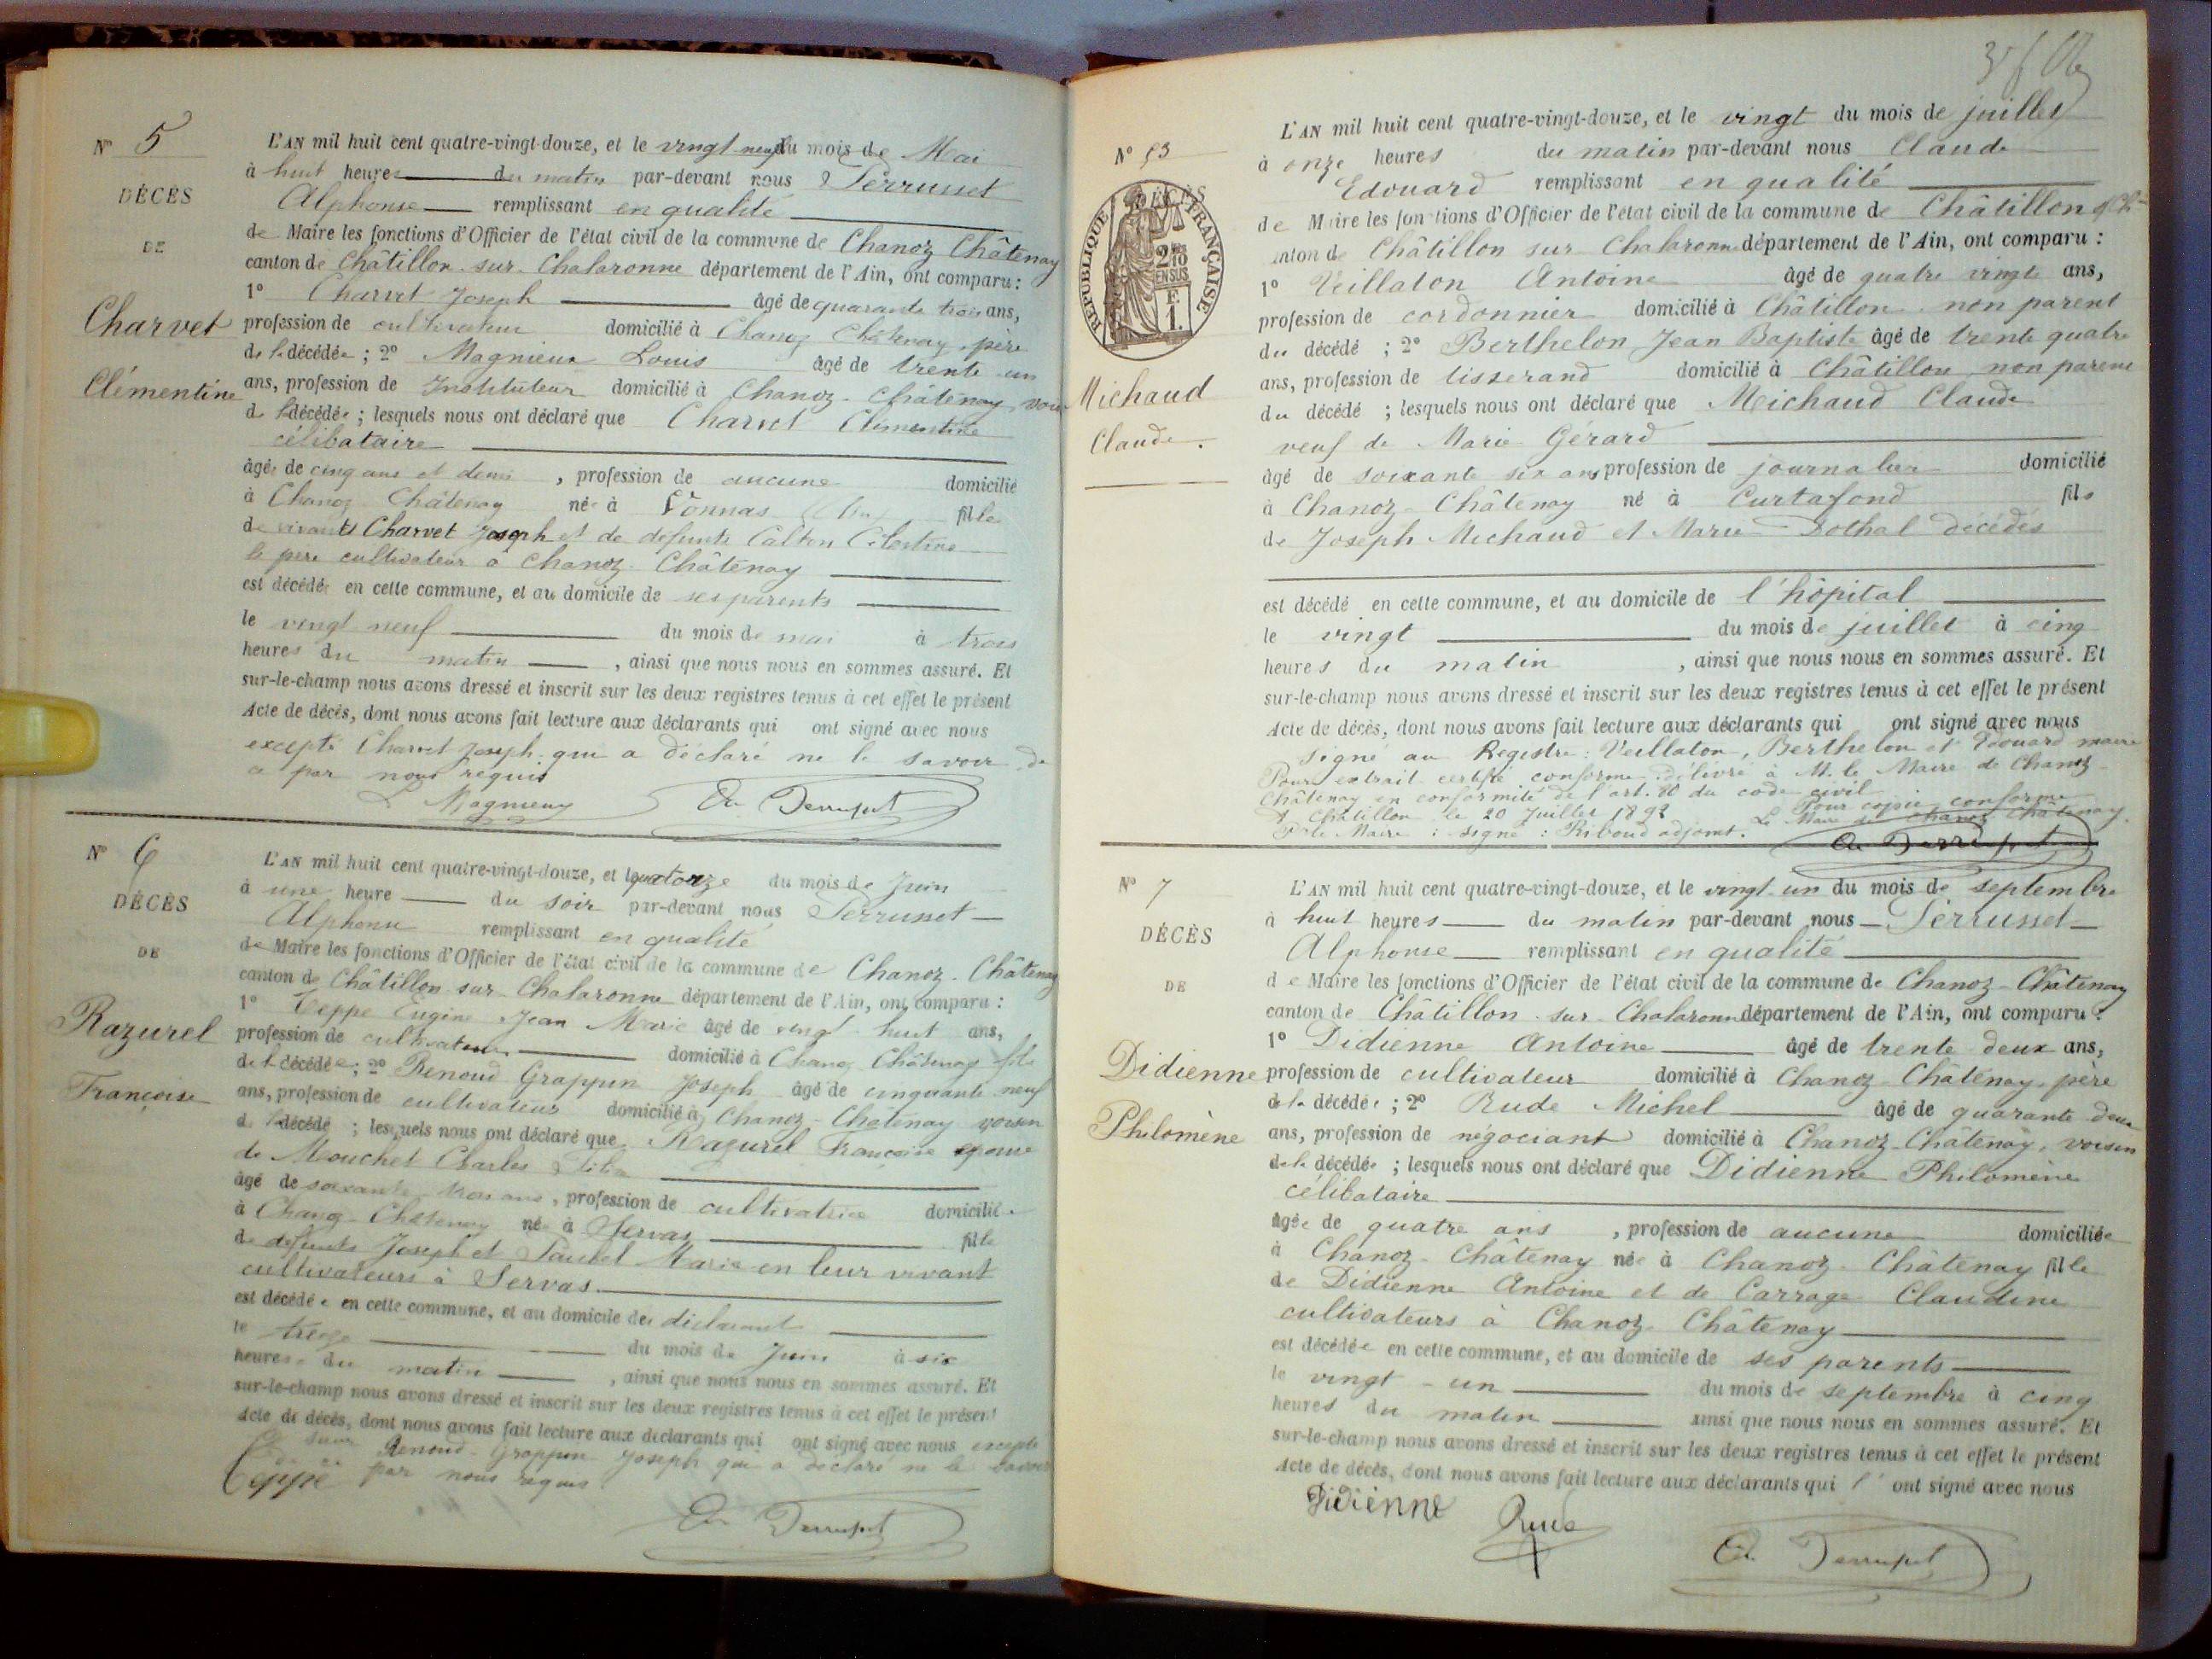 N° 5
DÉCÈS
DE
Charvet
Clémentine
L'AN mil huit cent quatre-vingt-douze, et le vingt neuf du mois de Mai
à huit heures du matin par-devant nous Perrusset
Alphonse remplissant en qualité
de Maire les fonctions d'Officier de l'état civil de la commune de Chanoz Châtenay
canton de Châtillon sur Chalaronne département de l'Ain, ont comparu :
1° Charvet Joseph âgé de quarante trois ans,
profession de cultivateur domicilié à Chanoz Châtenay, père
de la décédée ; 2° Magnieux Louis âgé de trente un
ans, profession de Instituteur domicilié à Chanoz-Châtenay, voisin
de la décédée ; lesquels nous ont déclaré que Charvet Clémentine
célibataire
âgée de cinq ans et demi , profession de aucune domicilié
à Chanoz Châtenay née à Vonnas (Ain) fille
de vivant Charvet Joseph et de defunte Célestine
le père cultivateur à Chanoz-Châtenay
est décédée en cette commune, et au domicile de ses parents
le vingt neuf du mois de mai à trois
heures du matin , ainsi que nous nous en sommes assuré. Et
sur-le-champ nous avons dressé et inscrit sur les deux registres tenus à cet effet le présent
Acte de décès, dont nous avons fait lecture aux déclarants qui ont signé avec nous
excepté Charvet Joseph qui a déclaré ne le savoir de
ce par nous requis
L Magnieux A. Perrusset
N° 6
DÉCÈS
DE
Razurel
Françoise
L'AN mil huit cent quatre-vingt-douze, et le quatorze du mois de Juin
à une heure du soir par-devant nous Perrusset
Alphonse remplissant en qualité
de Maire les fonctions d'Officier de l'état civil de la commune de Chanoz-Châtenay
canton de Châtillon sur Chalaronne département de l'Ain, ont comparu :
1° Teppe Eugène Jean Marie âgé de vingt huit ans,
profession de cultivateur domicilié à Chanoz Châtenay fils
de la décédée ; 2° Renoud Grappin Joseph âgé de cinquante neuf
ans, profession de cultivateur domicilié à Chanoz-Châtenay voisin
de la décédé ; lesquels nous ont déclaré que Razurel Françoise epouse
de Mouchet Charles
âgé de soixante trois ans, profession de cultivatrice domiciliée
à Chanoz-Châtenay née à Servas fille
de defunts Joseph et Marie en leur vivant
cultivateurs à Servas
est décédée en cette commune, et au domicile de déclarant
le treize du mois de Juin à six
heures du matin , ainsi que nous nous en sommes assuré. Et
sur-le-champ nous avons dressé et inscrit sur les deux registres tenus à cet effet le présent
Acte de décès, dont nous avons fait lecture aux déclarants qui ont signé avec nous excepté
Renoud-Grappin Joseph qui a déclaré ne le savoir
de ce par nous requis
Teppe
A. Perrusset
N° 53
DÉCÈS
RÉPUBLIQUE FRANÇAISE
2 10es EN SUS
F. 1.
Michaud
Claude.
L'AN mil huit cent quatre-vingt-douze, et le vingt du mois de juillet
à onze heures du matin par-devant nous Claude
Edouard remplissant en qualité
de Maire les fonctions d'Officier de l'état civil de la commune de Châtillon
canton de Châtillon sur Chalaronne département de l'Ain, ont comparu :
1° Veillaton Antoine âgé de quatre vingts ans,
profession de cordonnier domicilié à Châtillon non parent
du décédé ; 2° Berthelon Jean Baptiste âgé de trente quatre
ans, profession de tisserand domicilié à Châtillon, non parent
du décédé ; lesquels nous ont déclaré que Michaud Claude
veuf de Marie Gérard
âgé de soixante six ans profession de journalier domicilié
à Chanoz-Châtenay né à Curtafond fils
de Joseph Michaud et Marie Dothal décédés
est décédé en cette commune, et au domicile de l'hôpital
le vingt du mois de juillet à cinq
heures du matin , ainsi que nous nous en sommes assuré. Et
sur-le-champ nous avons dressé et inscrit sur les deux registres tenus à cet effet le présent
Acte de décès, dont nous avons fait lecture aux déclarants qui ont signé avec nous
signé au Registre : Veillaton, Berthelon et Edouard maire
Pour extrait certifié conforme délivré à M. le Maire de Chanoz
Châtenay en conformité de l'art. 80 du code civil
à Châtillon le 20 Juillet 1892 Pour copie conforme
Pr le Maire : signé : Riboud adjoint. Le Maire de Chanoz Châtenay.
A. Perrusset
N° 7
DÉCÈS
DE
Didienne
Philomène
L'AN mil huit cent quatre-vingt-douze, et le vingt-un du mois de septembre
à huit heures du matin par-devant nous Perrusset
Alphonse remplissant en qualité
de Maire les fonctions d'Officier de l'état civil de la commune de Chanoz-Châtenay
canton de Châtillon-sur-Chalaronne département de l'Ain, ont comparu :
1° Didienne Antoine âgé de trente deux ans,
profession de cultivateur domicilié à Chanoz-Châtenay, père
de la décédée ; 2° Rude Michel âgé de quarante deux
ans, profession de négociant domicilié à Chanoz-Châtenay, voisin
de la décédée ; lesquels nous ont déclaré que Didienne Philomène
célibataire
âgée de quatre ans , profession de aucune domiciliée
à Chanoz-Châtenay née à Chanoz-Châtenay fille
de Didienne Antoine et de Carrage Claudine
cultivateurs à Chanoz-Châtenay
est décédée en cette commune, et au domicile de ses parents
le vingt-un du mois de septembre à cinq
heures du matin ainsi que nous nous en sommes assuré. Et
sur-le-champ nous avons dressé et inscrit sur les deux registres tenus à cet effet le présent
Acte de décès, dont nous avons fait lecture aux déclarants qui l' ont signé avec nous
Didienne Rude
A. Perrusset